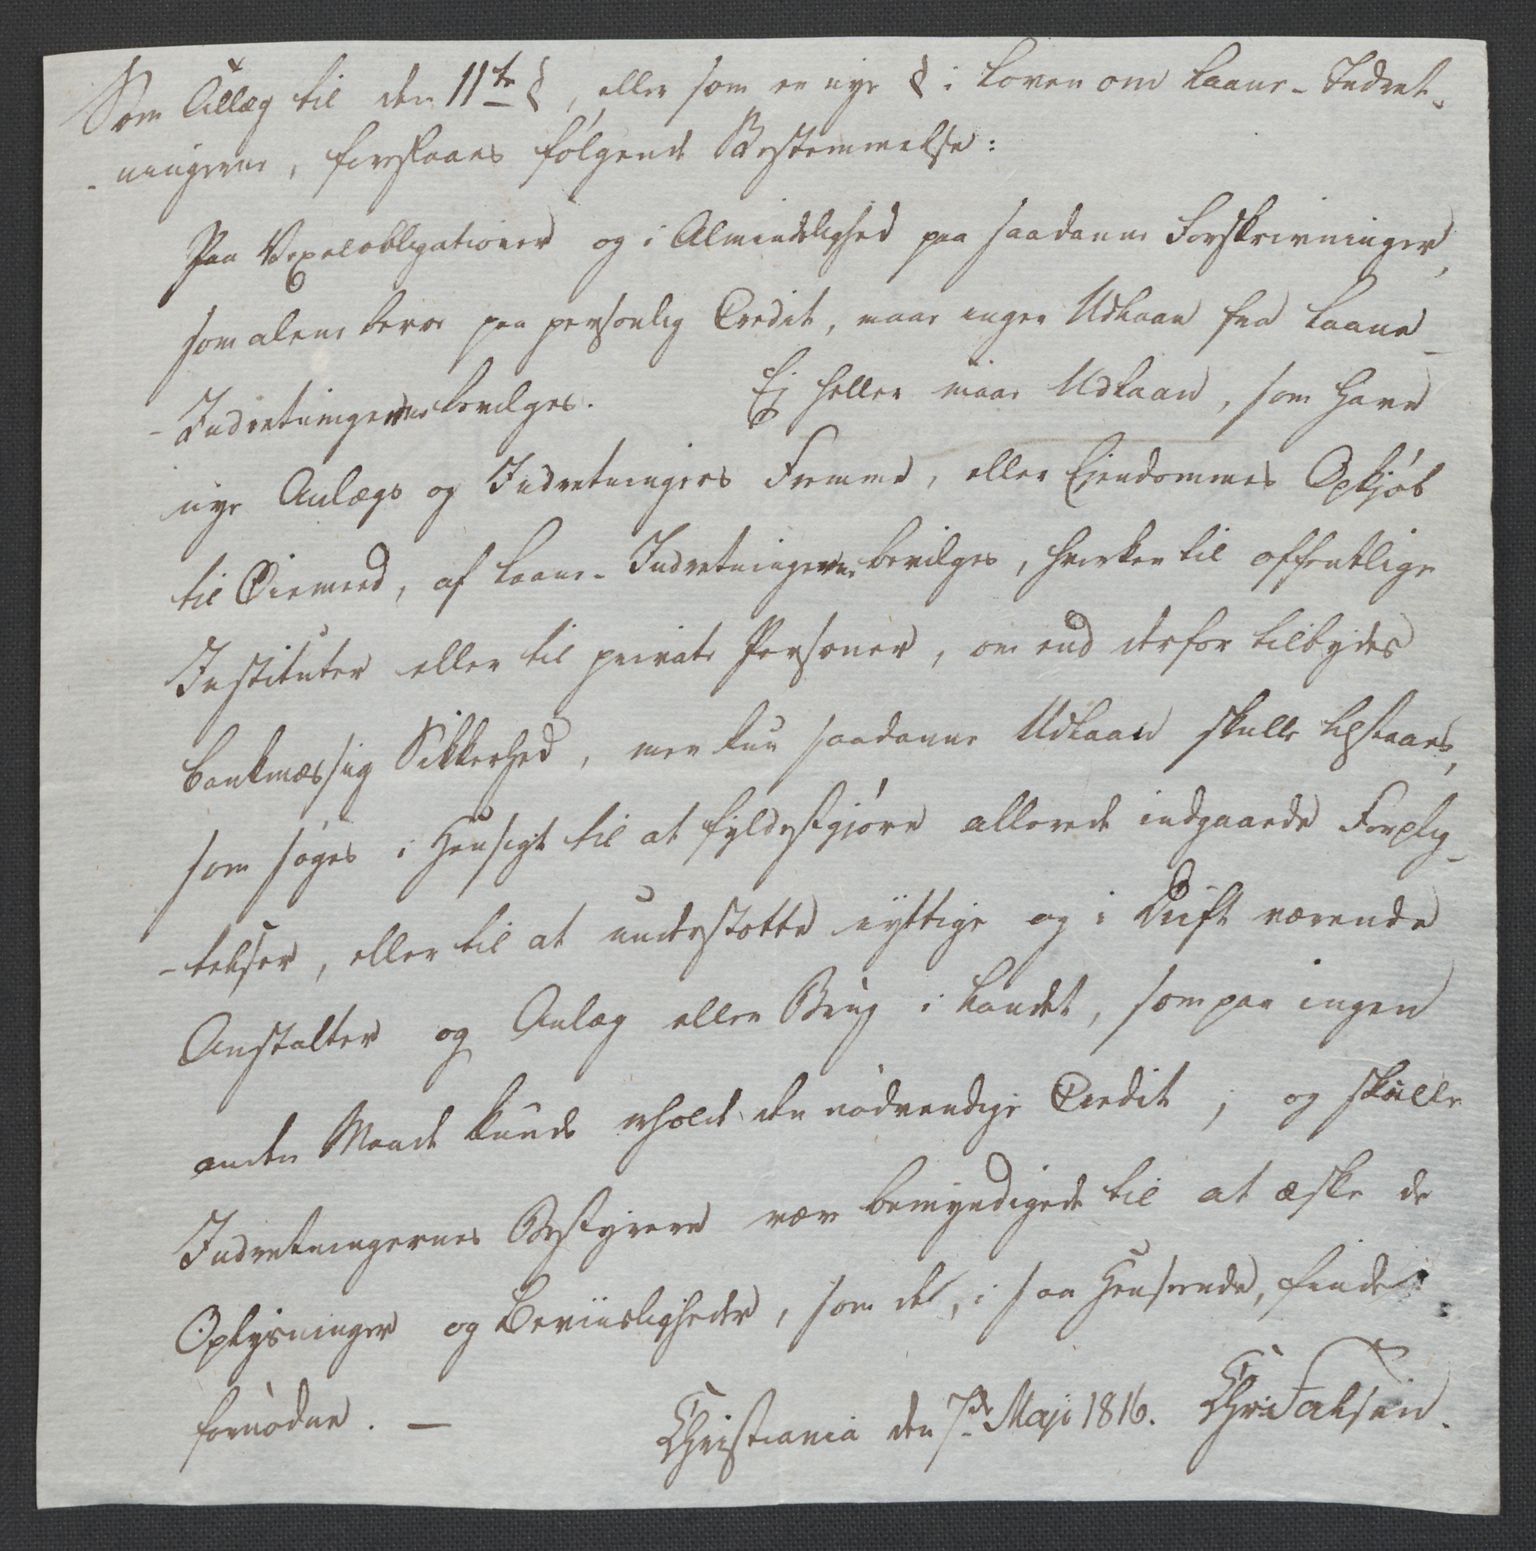 Som Tillæg til den 11te §, eller som en nye § i Loven om Laane-Indret-
-ningerne, foreslaaes følgende Bestemmelse:
Paa Vexelobligationer og i Almindelighed paa saadanne Forskrivninger,
som alene beroe paa personlig Credit, maae ingen Udlaan fra Laane-
-Indretningerne bevilges. Ej heller maae Udlaan, som have
nye Anlægs og Indretningers Fremme, eller Eiendommes Opkjøb
til Øiemeed, af Laane-Indretningerne bevilges, hverken til offentlige
Instituter eller til private Personer, om end derfor tilbydes
bankmæssig Sikkerhed, men kun saadanne Udlaan skulle tilstaaes,
som søges i Hensigt til at fyldestgjøre allerede indgaaede Forplig-
-telser, eller til at understøtte nyttige og i Drift værende
Anstalter og Anlæg eller Brug i Landet, som paa ingen
anden Maade kunde erholde den nødvendige Credit; og skulle
Indretningernes Bestyrere være bemyndigede til at æske de
Oplysninger og Beviisligheder, som de, i saa Henseende, finde
fornødne. —
Christiania den 7de Maji 1816. Chr: Falsen.